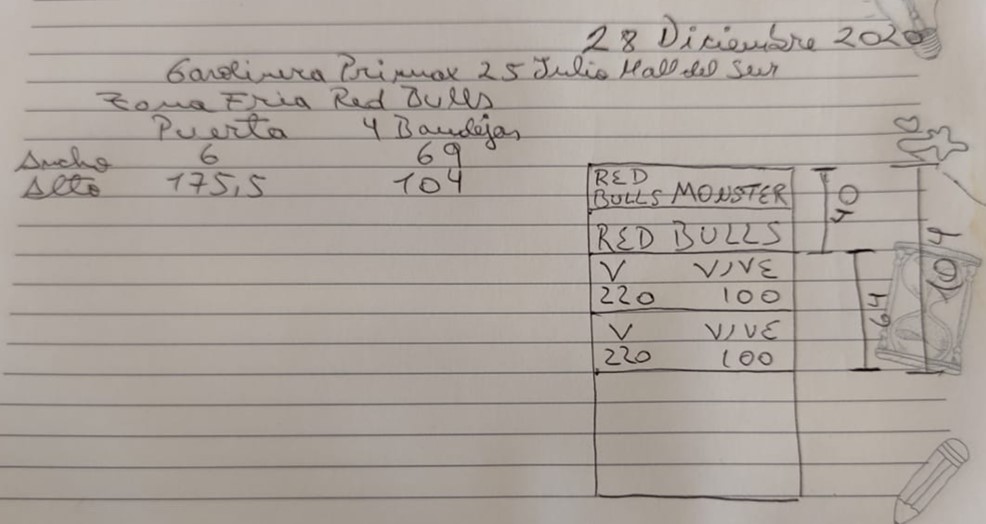 28 Diciembre 2020
Gasolinera Primax 25 Julio Mall del Sur
Zona Fria Red Bulls
Puerta 4 Bandejas
Ancho 6 69
Alto 175,5 104
RED
BULLS MONSTER
RED BULLS
V VIVE
220 100
V VIVE
220 100
40
64
104